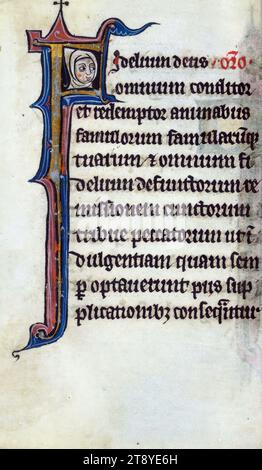 Fidelium deus oro
omnium conditor
et redemptor animabus
famulorum famularumq;
tuarum ⁊ omnium fi
delium defunctorum re
missionem cunctorum
tribue peccatorum ut in
dulgentiam quam sem
p optauerunt piis sup
plicationibȝ consequantur
alamy
Image ID: 2K8YE6H
www.alamy.com